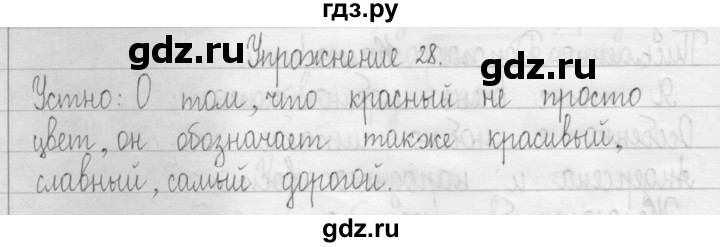 гдз.ру
gdz.ru gdz.ru
Упражнение 28.
Устно: О том, что красный не просто
цвет, он обозначает также красивый,
славный, самый дорогой.
gdz.ru gdz.ru
gdz.ru